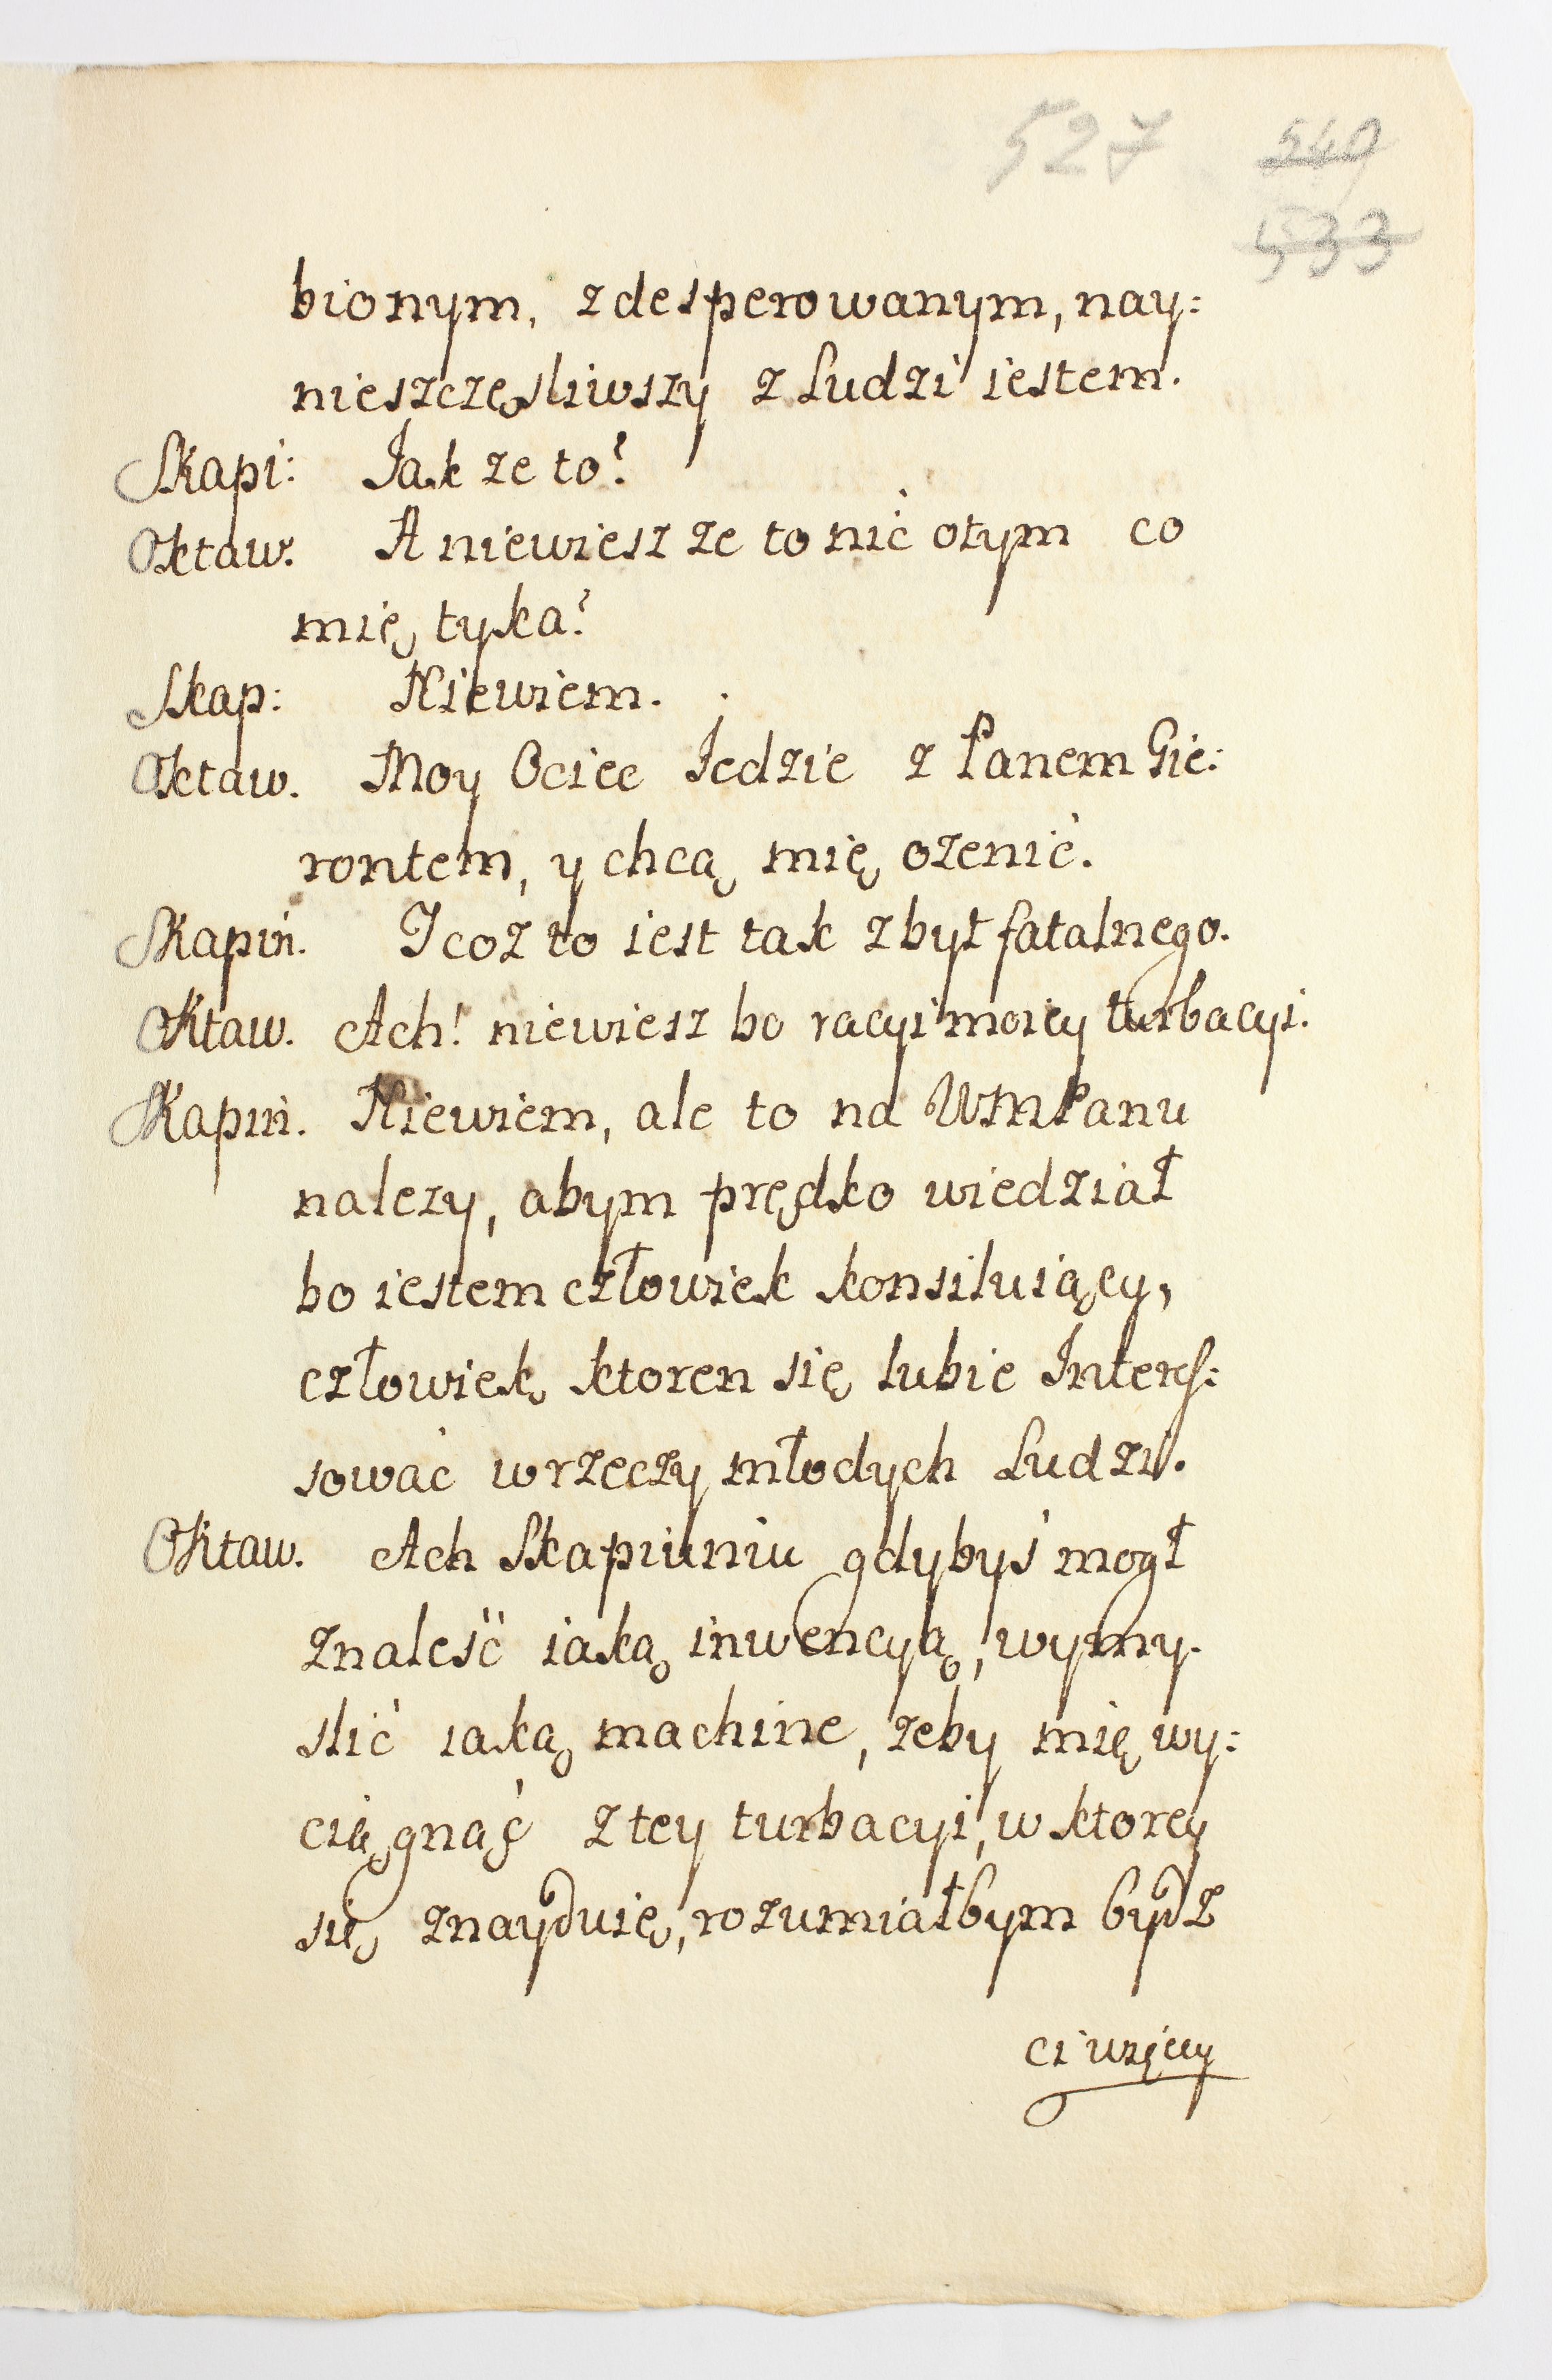 527 549
533
bionym, zdesperowanym, nay:
nieszczęsliwszy z Ludzi iestem.
Skapi: Jak ze to?
Oktaw. A niewiesz ze to nic otym co
mię tyka?
Skap: Niewiem.
Oktaw. Moy Ociec Jedzie z Panem Gie:
rontem, y chcą mię ozenić.
Skapin. J coz to iest tak zbyt fatalnego.
Oktaw. Ach! niewiesz bo racyi moiey turbacyi.
Skapin. Niewiem, ale to na WMPanu
nalezy, abym prędko wiedział
bo iestem człowiek konsiluiący,
człowiek ktoren się lubie Interes:
sowac w rzeczy młodych Ludzi.
Oktaw. Ach Skapiuniu gdybyś mogł
znaleść iaką inwencyą, wymy.
slić iaką machine, zeby mię wy:
ciągnąć z tey turbacyi, w ktorey
się znayduię, rozumiałbym bydz
ci więcy